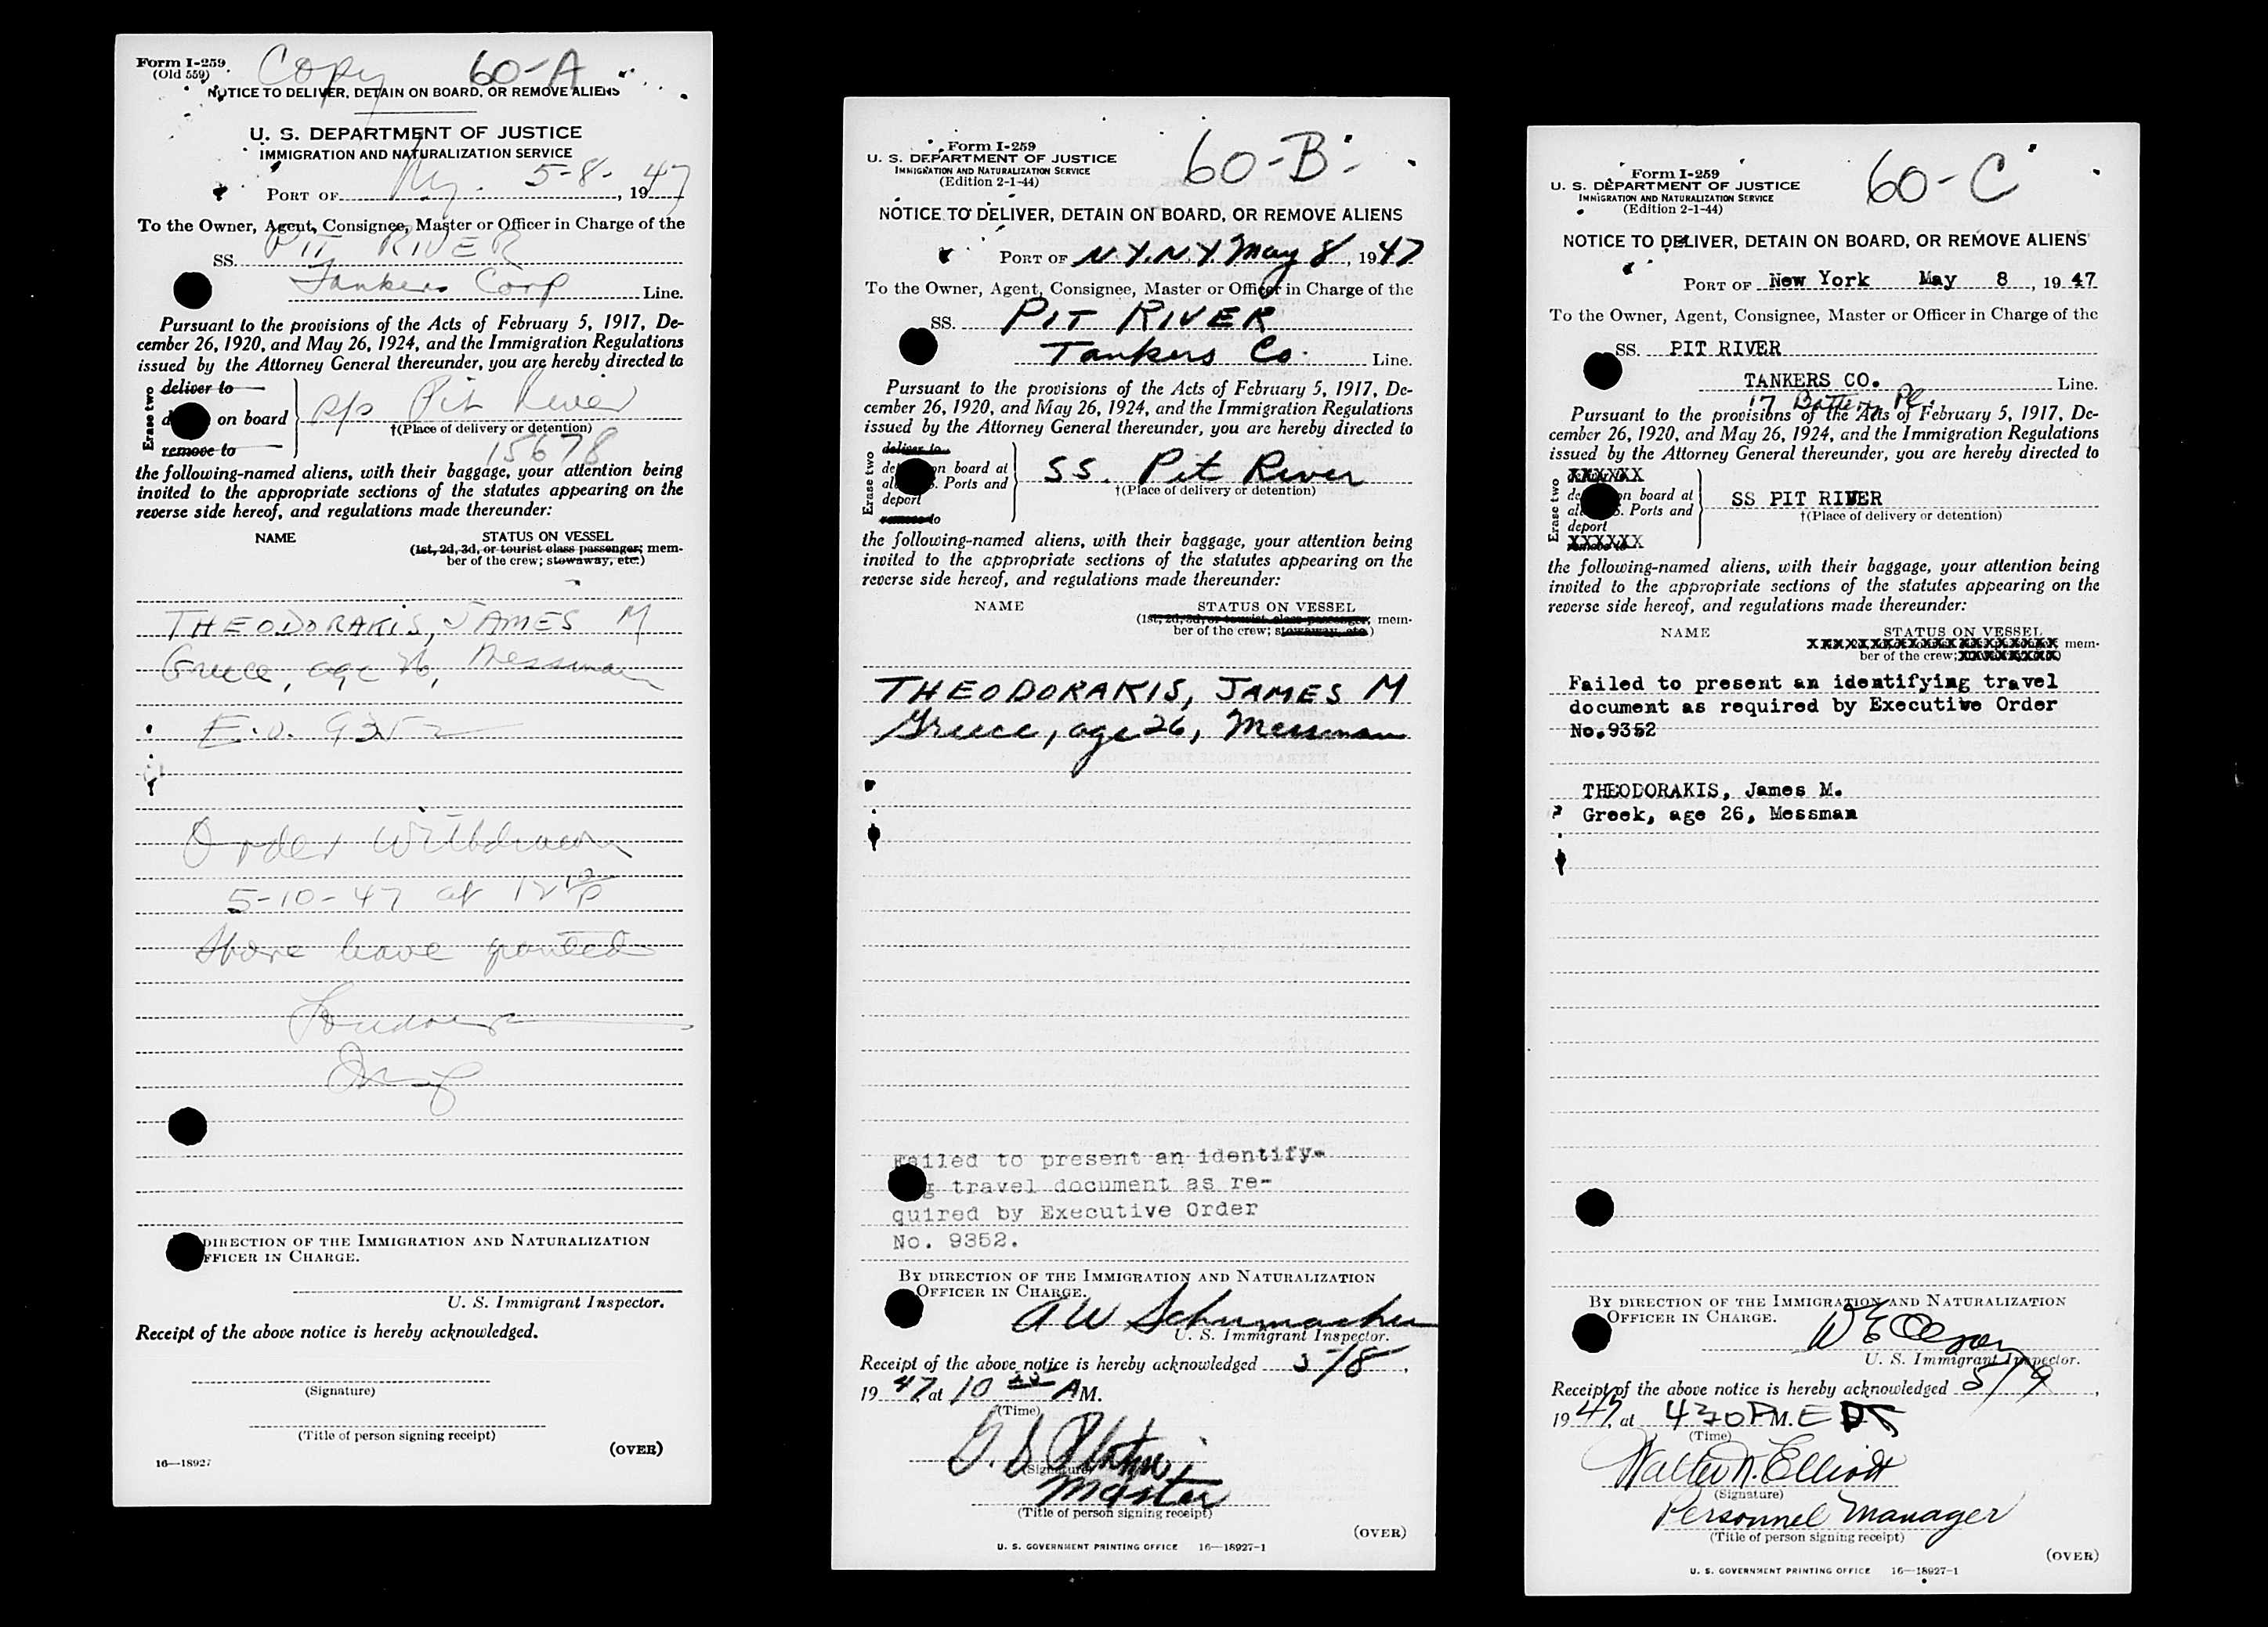 Form I-259
(Old 559)
Copy 60-A
NOTICE TO DELIVER, DETAIN ON BOARD, OR REMOVE ALIENS
U. S. DEPARTMENT OF JUSTICE
IMMIGRATION AND NATURALIZATION SERVICE
PORT OF Ny. 5-8-, 1947
To the Owner, Agent, Consignee, Master or Officer in Charge of the
SS. PIT RIVER
Tankers Corp Line.
Pursuant to the provisions of the Acts of February 5, 1917, De-
cember 26, 1920, and May 26, 1924, and the Immigration Regulations
issued by the Attorney General thereunder, you are hereby directed to
Erase two
deliver to
on board
remove to
s/s Pit River
†(Place of delivery or detention)
15678
the following-named aliens, with their baggage, your attention being
invited to the appropriate sections of the statutes appearing on the
reverse side hereof, and regulations made thereunder:
NAME STATUS ON VESSEL
(1st, 2d, 3d, or tourist class passenger; mem-
ber of the crew; stowaway, etc.)
THEODORAKIS, JAMES M
Greece, age 26, Messman
E.O. 9352
Order Withdrawn
5-10-47 at 12 10 P
Shore leave granted
DIRECTION OF THE IMMIGRATION AND NATURALIZATION
FFICER IN CHARGE.
U. S. Immigrant Inspector.
Receipt of the above notice is hereby acknowledged.
(Signature)
(Title of person signing receipt)
(OVER)
16—18927
Form I-259
U. S. DEPARTMENT OF JUSTICE
IMMIGRATION AND NATURALIZATION SERVICE
(Edition 2-1-44)
60-B-
NOTICE TO DELIVER, DETAIN ON BOARD, OR REMOVE ALIENS
PORT OF N.Y.N.Y. May 8, 1947
To the Owner, Agent, Consignee, Master or Officer in Charge of the
SS. PIT RIVER
Tankers Co. Line.
Pursuant to the provisions of the Acts of February 5, 1917, De-
cember 26, 1920, and May 26, 1924, and the Immigration Regulations
issued by the Attorney General thereunder, you are hereby directed to
Erase two
deliver to
de n board at
al . Ports and
deport
remove to
SS. Pit River
†(Place of delivery or detention)
the following-named aliens, with their baggage, your attention being
invited to the appropriate sections of the statutes appearing on the
reverse side hereof, and regulations made thereunder:
NAME STATUS ON VESSEL
(1st, 2d, 3d, or tourist class passenger; mem-
ber of the crew; stowaway, etc.)
THEODORAKIS, JAMES M
Greece, age 26, Messman
Failed to present an identify-
g travel document as re-
quired by Executive Order
No. 9352.
BY DIRECTION OF THE IMMIGRATION AND NATURALIZATION
OFFICER IN CHARGE.
A W Schumacher
U. S. Immigrant Inspector.
Receipt of the above notice is hereby acknowledged 5/8,
1947 at 10 AM.
(Time)
(Signature)
Master
(Title of person signing receipt)
(OVER)
U. S. GOVERNMENT PRINTING OFFICE 16—18927-1
Form I-259
U. S. DEPARTMENT OF JUSTICE
IMMIGRATION AND NATURALIZATION SERVICE
(Edition 2-1-44)
60-C
NOTICE TO DELIVER, DETAIN ON BOARD, OR REMOVE ALIENS
PORT OF New York May 8, 1947
To the Owner, Agent, Consignee, Master or Officer in Charge of the
SS. PIT RIVER
TANKERS CO. Line.
17 Battery Pl.
Pursuant to the provisions of the Acts of February 5, 1917, De-
cember 26, 1920, and May 26, 1924, and the Immigration Regulations
issued by the Attorney General thereunder, you are hereby directed to
Erase two
XXXXXX
de n board at
al . Ports and
deport
XXXXXX
SS PIT RIVER
†(Place of delivery or detention)
the following-named aliens, with their baggage, your attention being
invited to the appropriate sections of the statutes appearing on the
reverse side hereof, and regulations made thereunder:
NAME STATUS ON VESSEL
XXXXXXXXXXXXXXXXXXXX mem-
ber of the crew; XXXXXXXX)
Failed to present an identifying travel
document as required by Executive Order
No.9352
THEODORAKIS, James M.
Greek, age 26, Messman
BY DIRECTION OF THE IMMIGRATION AND NATURALIZATION
OFFICER IN CHARGE.
U. S. Immigrant Inspector.
Receipt of the above notice is hereby acknowledged 5/9,
1947, at 430 PM. EDT
(Time)
Walter N. Elliott
(Signature)
Personnel Manager
(Title of person signing receipt)
(OVER)
U. S. GOVERNMENT PRINTING OFFICE 16—18927-1